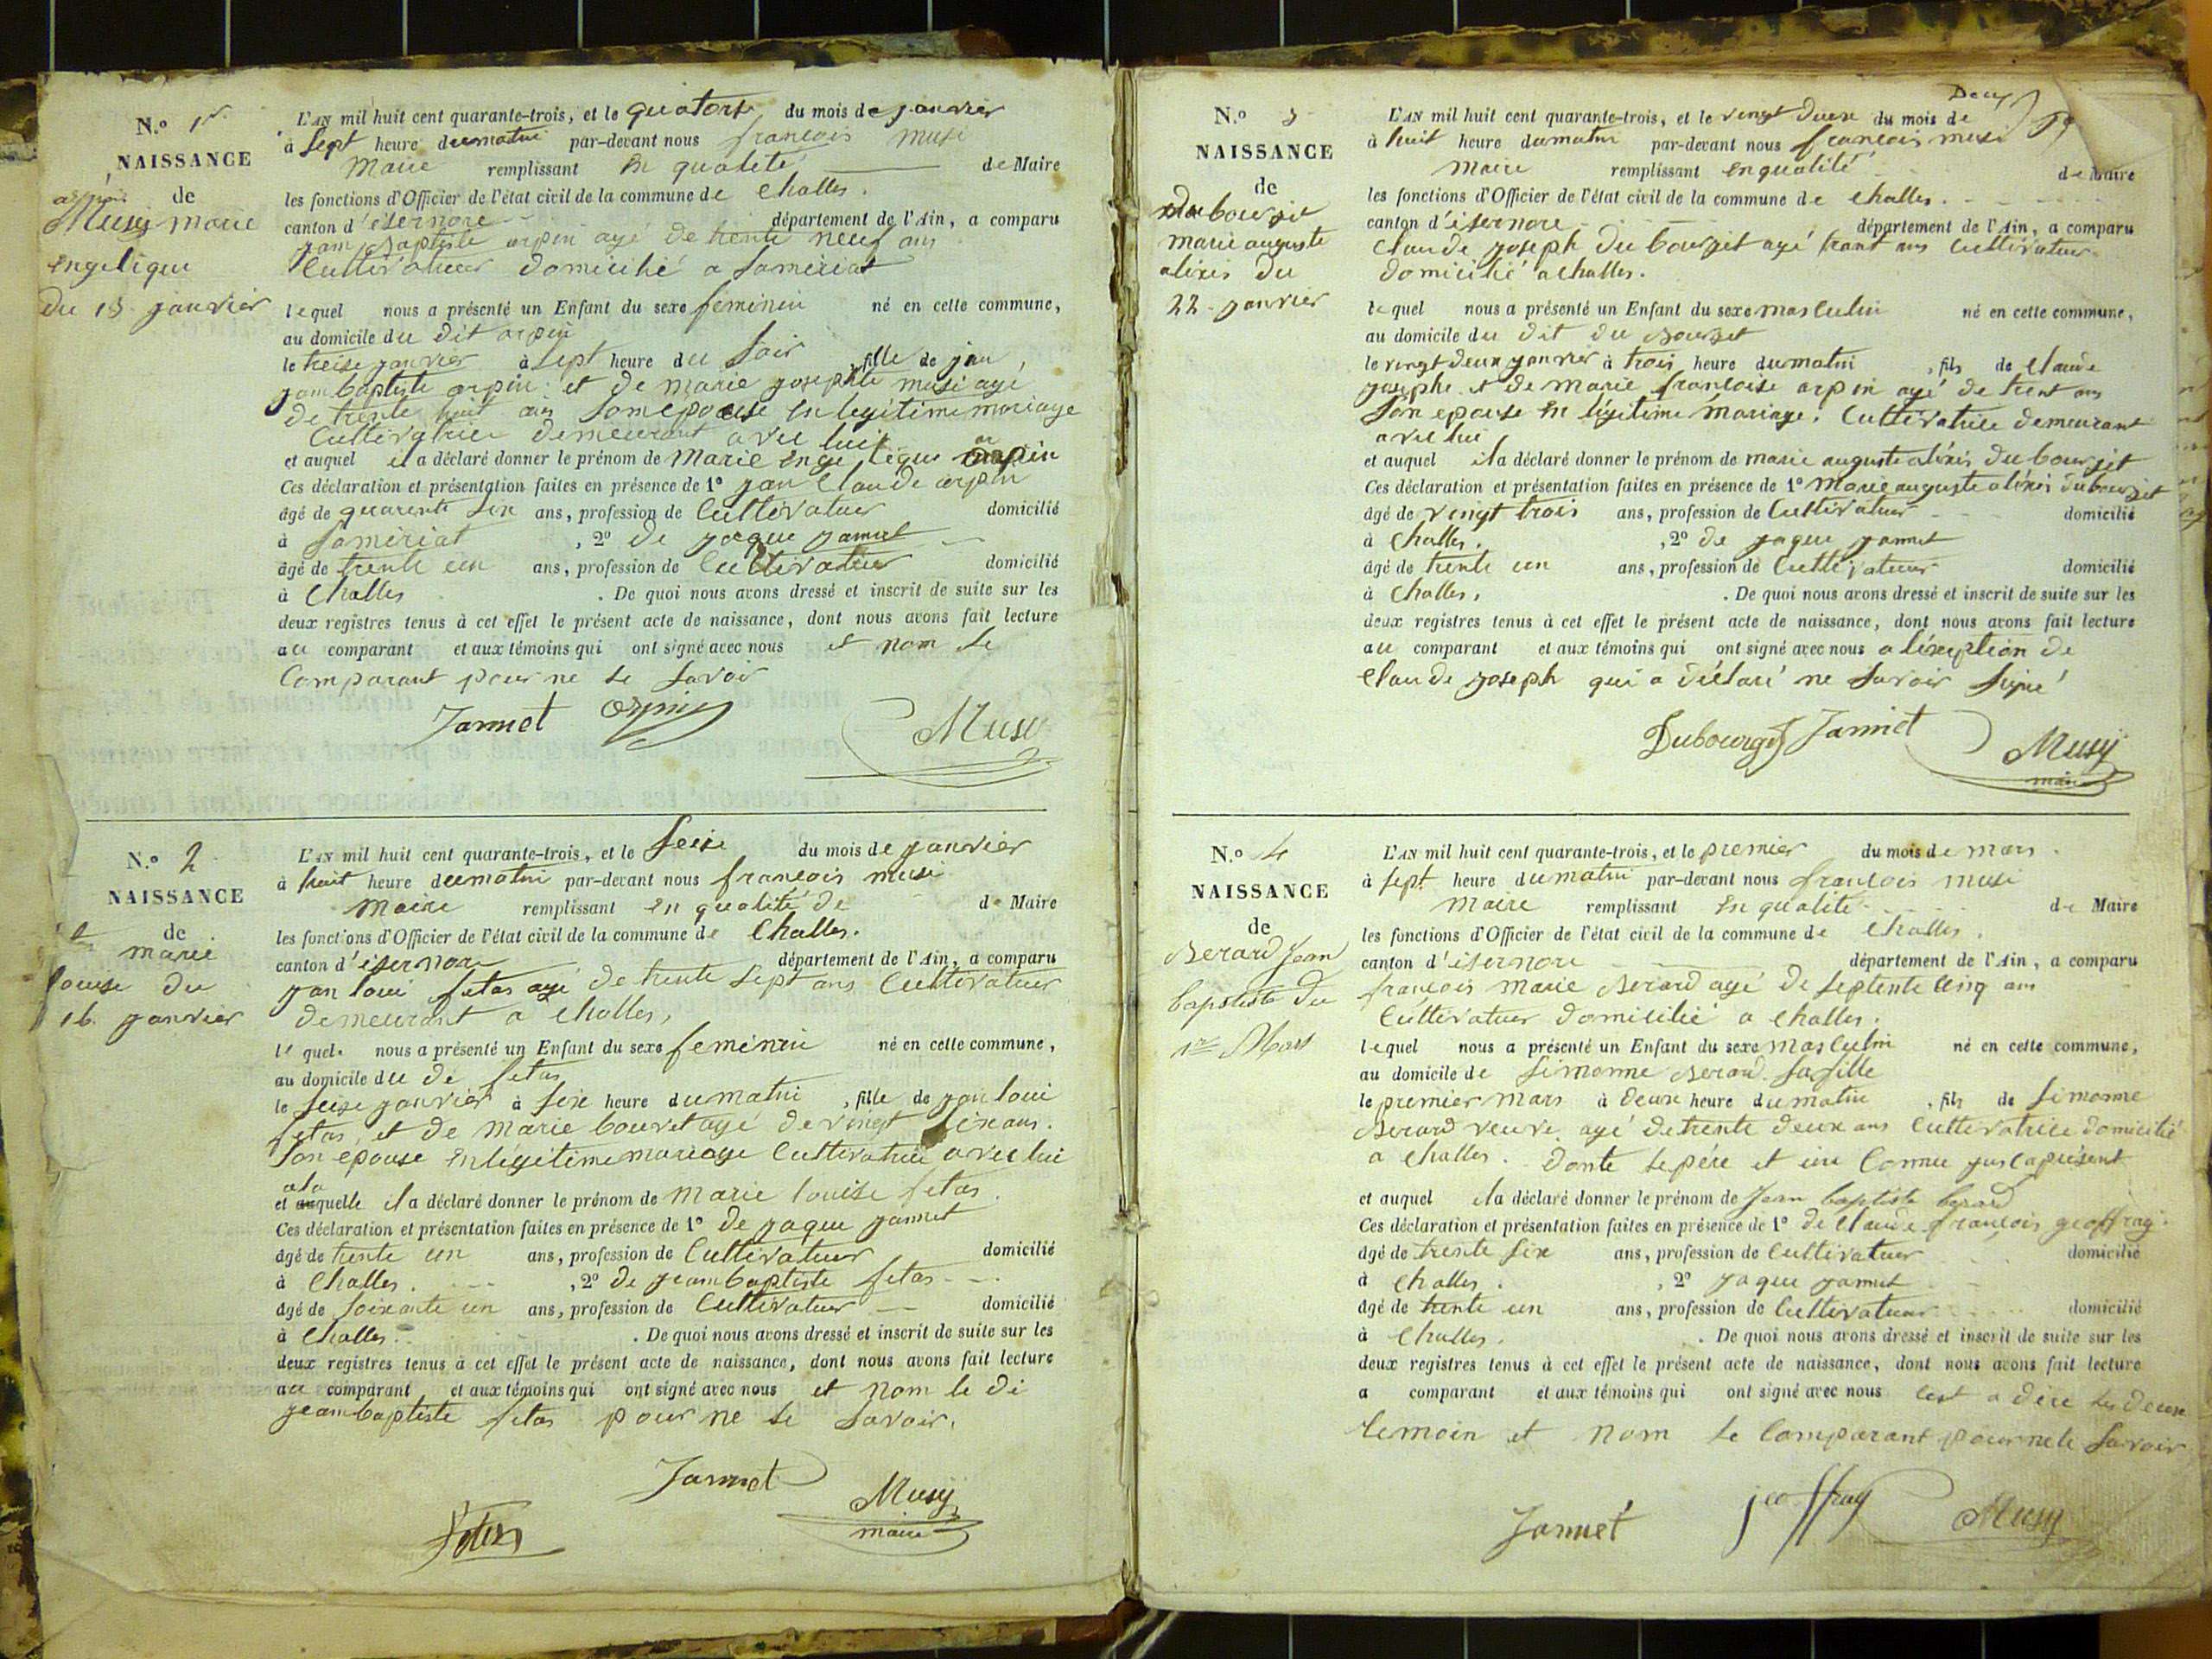 N.º 1er
NAISSANCE
de
arpin
Musy marie
engelique
du 13 janvier
L'AN mil huit cent quarante-trois, et le quatorse du mois de janvier
à sept heure du matin par-devant nous francois musi
Maire remplissant en qualité de Maire
les fonctions d'Officier de l'état civil de la commune de Challes.
canton d'isernore département de l'Ain, a comparu
jam Baptiste arpin agé de trente neuf ans
Cultivateur domicilié a Samériat
lequel nous a présenté un Enfant du sexe feminin né en cette commune,
au domicile du dit arpin
le treise janvier à sept heure du soir, fille de jan
jambaptiste arpin et de marie josephte musi agé
de trente huit ans Somepouse en legitime mariage
Cultivatrice demeurant avec lui
et auquel il a déclaré donner le prénom de Marie Engelique arpin
Ces déclaration et présentation faites en présence de 1º jan Claude arpin
âgé de quarente six ans, profession de Cultivateur domicilié
à Samériat, 2º de jaque jannet
âgé de trente un ans, profession de Cultivateur domicilié
à Challes. De quoi nous avons dressé et inscrit de suite sur les
deux registres tenus à cet effet le présent acte de naissance, dont nous avons fait lecture
au comparant et aux témoins qui ont signé avec nous et nom le
Comparant pour ne le savoir
Jannet Arpin Musy
N.º 2
NAISSANCE
de
marie
louise du
16 janvier
L'AN mil huit cent quarante-trois, et le seise du mois de janvier
à huit heure du matin par-devant nous francois musi
Maire remplissant en qualité de de Maire
les fonctions d'Officier de l'état civil de la commune de Challes.
canton d'isernore département de l'Ain, a comparu
jan loui fetas agé de trente sept ans Cultivateur
demeurant a Challes,
lequel nous a présenté un Enfant du sexe feminin né en cette commune,
au domicile du di fetas
le seise janvier à six heure du matin, fille de jan loui
fetas, et de marie bouvet agé de vingt six ans.
Son epouse en legitime mariage Cultivatrice avec lui
ala
et auquelle il a déclaré donner le prénom de marie louise fetas.
Ces déclaration et présentation faites en présence de 1º de jaque jannet
âgé de trente un ans, profession de Cultivateur domicilié
à Challes., 2º de jeambaptiste fetas
âgé de soixante un ans, profession de Cultivateur domicilié
à Challes. De quoi nous avons dressé et inscrit de suite sur les
deux registres tenus à cet effet le présent acte de naissance, dont nous avons fait lecture
au comparant et aux témoins qui ont signé avec nous et nom le di
jeambaptiste fetas pour ne le savoir.
Jannet Musy
fetas maire
Deux
N.º 3
NAISSANCE
de
du bourget
marie auguste
alixis du
22 janvier
L'AN mil huit cent quarante-trois, et le vingt deux du mois de
à huit heure du matin par-devant nous francois musi
Maire remplissant en qualité de Maire
les fonctions d'Officier de l'état civil de la commune de Challes.
canton d'isernore département de l'Ain, a comparu
Claude joseph du bourget agé trant ans Cultivateur
domicilié a Challes.
lequel nous a présenté un Enfant du sexe masculin né en cette commune,
au domicile du dit du Bourget
le vingt deux janvier à trois heure du matin, fils de Claude
josephe et de marie francoise arpin agé de trent ans
Son epouse en légitime mariage. Cultivatrice demeurant
avec lui
et auquel il a déclaré donner le prénom de marie auguste alixis du bourget
Ces déclaration et présentation faites en présence de 1º Marie auguste alixis dubourget
âgé de vingt trois ans, profession de Cultivateur domicilié
à Challes., 2º de jaque jannet
âgé de trente un ans, profession de Cultivateur domicilié
à Challes. De quoi nous avons dressé et inscrit de suite sur les
deux registres tenus à cet effet le présent acte de naissance, dont nous avons fait lecture
au comparant et aux témoins qui ont signé avec nous a léxeption de
Claude joseph qui a déclaré ne savoir signé
Dubourget Jannet Musy
maire
N.º 4
NAISSANCE
de
Berard Jean
baptiste du
1er Mars
L'AN mil huit cent quarante-trois, et le premier du mois de mars.
à sept heure du matin par-devant nous francois musi
Maire remplissant en qualité de Maire
les fonctions d'Officier de l'état civil de la commune de Challes.
canton d'isernore département de l'Ain, a comparu
francois marie Berard agé de septente cinq ans
Cultivateur domicilié a Challes.
lequel nous a présenté un Enfant du sexe masculin né en cette commune,
au domicile de simonne Berard sa fille
le premier mars à deux heure du matin, fils de simonne
Berard veuve agé de trente deux ans Cultivatrice domicilié
a Challes. donte le pére et ін connu jusca présent
et auquel il a déclaré donner le prénom de Jean baptiste berard
Ces déclaration et présentation faites en présence de 1º de Claude francois geoffray
âgé de trente six ans, profession de Cultivateur domicilié
à Challes., 2º jaque jannet
âgé de trente un ans, profession de Cultivateur domicilié
à Challes. De quoi nous avons dressé et inscrit de suite sur les
deux registres tenus à cet effet le présent acte de naissance, dont nous avons fait lecture
a comparant et aux témoins qui ont signé avec nous cest a dire les deux
temoin et nom le Comparant pour ne le savoir
Jannet jeoffray Musy